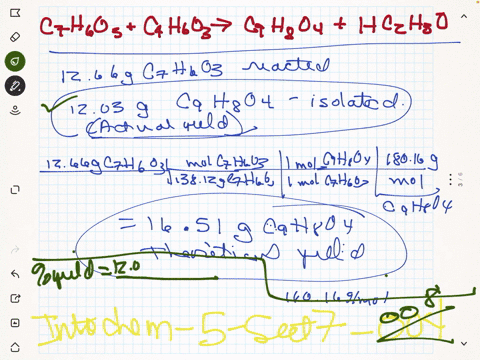 C7H6O3 + C4H6O3 → C9H8O4 + HC2H3O
12.66g C7H6O3 reacted
✓ 12.03 g C9H8O4 - isolated.
(Actual yield)
12.66g C7H6O3 | mol C7H6O3 | 1 mol C9H8O4 | 180.16 g
138.12g C7H6O3 | 1 mol C7H6O3 | mol
C9H8O4
= 16.51 g C9H8O4
theoretical yeild
%yield = 12.0
160.16g/mol
Intochem-5-Sect7-
008